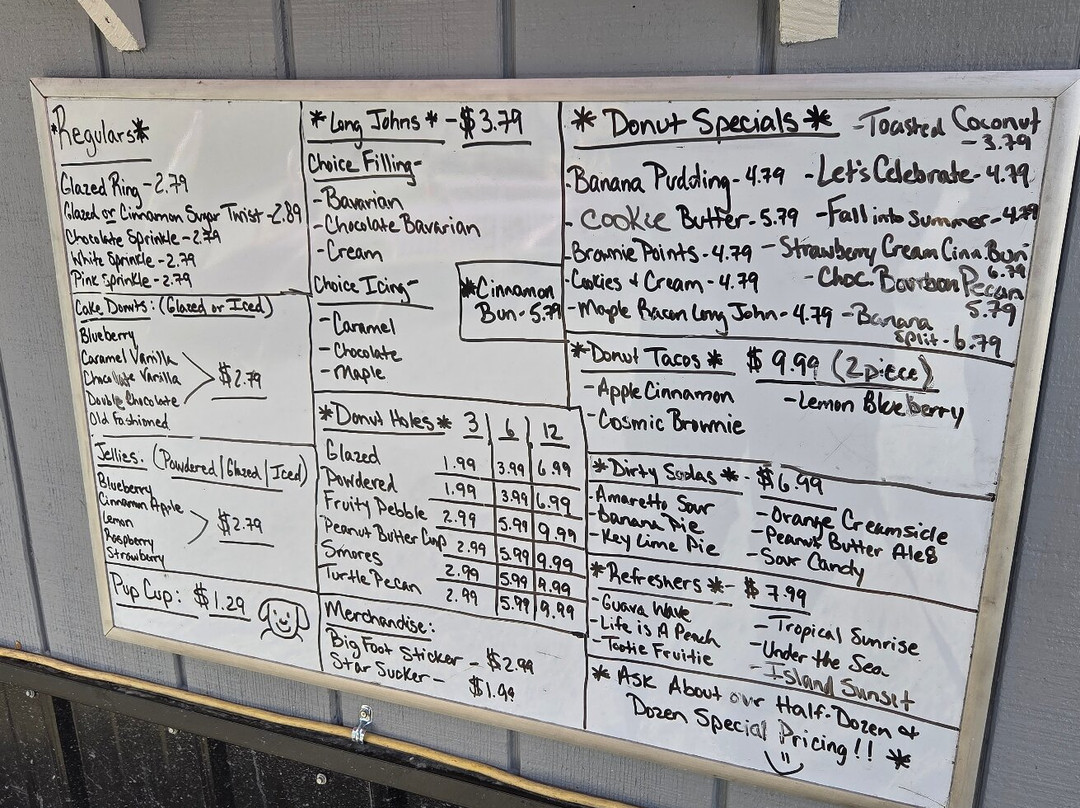 *Regulars*
Glazed Ring - 2.79
Glazed or Cinnamon Sugar Twist - 2.89
Chocolate Sprinkle - 2.79
White Sprinkle - 2.79
Pink Sprinkle - 2.79
Cake Donuts: (Glazed or Iced)
Blueberry
Caramel Vanilla
Chocolate Vanilla
Double Chocolate
Old Fashioned
$2.79
Jellies: (Powdered | Glazed | Iced)
Blueberry
Cinnamon Apple
Lemon
Raspberry
Strawberry
$2.79
Pup Cup: $1.29
*Long Johns* - $3.79
Choice Filling -
- Bavarian
- Chocolate Bavarian
- Cream
Choice Icing -
- Caramel
- Chocolate
- Maple
*Cinnamon
Bun - 5.79
*Donut Holes* 3 | 6 | 12
Glazed 1.99 3.99 6.99
Powdered 1.99 3.99 6.99
Fruity Pebble 2.99 5.99 9.99
Peanut Butter Cup 2.99 5.99 9.99
Smores 2.99 5.99 9.99
Turtle Pecan 2.99 5.99 9.99
Merchandise:
Big Foot Sticker - $2.99
Star Sucker - $1.99
*Donut Specials*
- Banana Pudding - 4.79
- Cookie Butter - 5.79
- Brownie Points - 4.79
- Cookies + Cream - 4.79
- Maple Bacon Long John - 4.79
- Toasted Coconut
- 3.79
- Let's Celebrate - 4.79
- Fall into Summer - 4.79
- Strawberry Cream Cina. Bun
6.79
- Choc. Bourbon Pecan
5.79
- Banana
Split - 6.79
*Donut Tacos* $9.99 (2 piece)
- Apple Cinnamon
- Cosmic Brownie
- Lemon Blueberry
*Dirty Sodas* - $6.99
- Amaretto Sour
- Banana Pie
- Key Lime Pie
- Orange Creamsicle
- Peanut Butter Ale8
- Sour Candy
*Refreshers* - $7.99
- Guava Wave
- Life is A Peach
- Tootie Fruitie
- Tropical Sunrise
- Under the Sea
- Island Sunset
* Ask About our Half-Dozen +
Dozen Special Pricing!! *